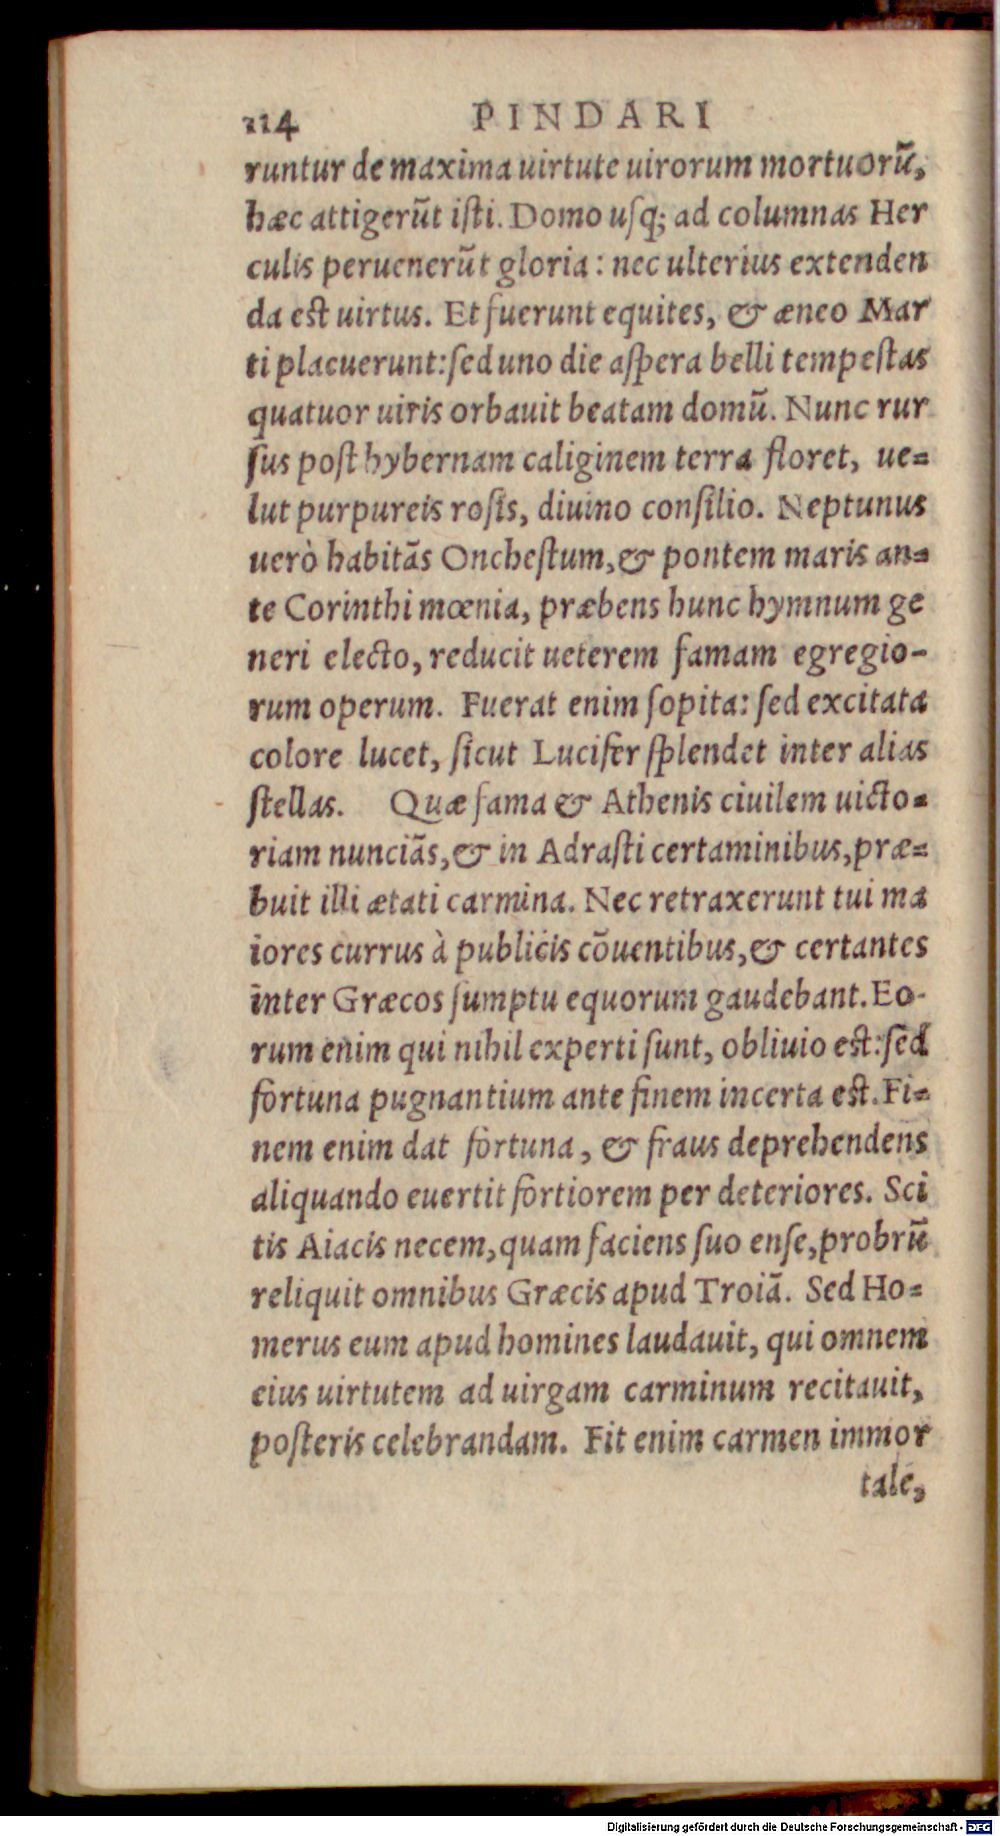 214 PINDARI
runtur de maxima uirtute uirorum mortuorū,
hæc attigerūt iſti. Domo uſq; ad columnas Her
culis peruenerūt gloria: nec ulterius extenden
da est uirtus. Et fuerunt equites, & æneo Mar
ti placuerunt: ſed uno die aſpera belli tempeſtas
quatuor uiris orbauit beatam domū. Nunc rur
ſus poſt hybernam caliginem terra floret, ue=
lut purpureis roſis, diuino conſilio. Neptunus
uerò habitās Oncheſtum, & pontem maris an=
te Corinthi mœnia, præbens hunc hymnum ge
neri electo, reducit ueterem famam egregio-
rum operum. Fuerat enim ſopita: ſed excitata
colore lucet, ſicut Lucifer ſplendet inter alias
ſtellas. Quæ fama & Athenis ciuilem uicto=
riam nunciās, & in Adraſti certaminibus, præ=
buit illi ætati carmina. Nec retraxerunt tui ma
iores currus à publicis cōuentibus, & certantes
inter Græcos ſumptu equorum gaudebant. Eo-
rum enim qui nihil experti ſunt, obliuio est: ſed
fortuna pugnantium ante finem incerta est. Fi=
nem enim dat fortuna, & fraus deprehendens
aliquando euertit fortiorem per deteriores. Sci
tis Aiacis necem, quam faciens ſuo enſe, probrū
reliquit omnibus Græcis apud Troiā. Sed Ho=
merus eum apud homines laudauit, qui omnem
eius uirtutem ad uirgam carminum recitauit,
poſteris celebrandam. Fit enim carmen immor
tale,
Digitalisierung gefördert durch die Deutsche Forschungsgemeinschaft - DFG